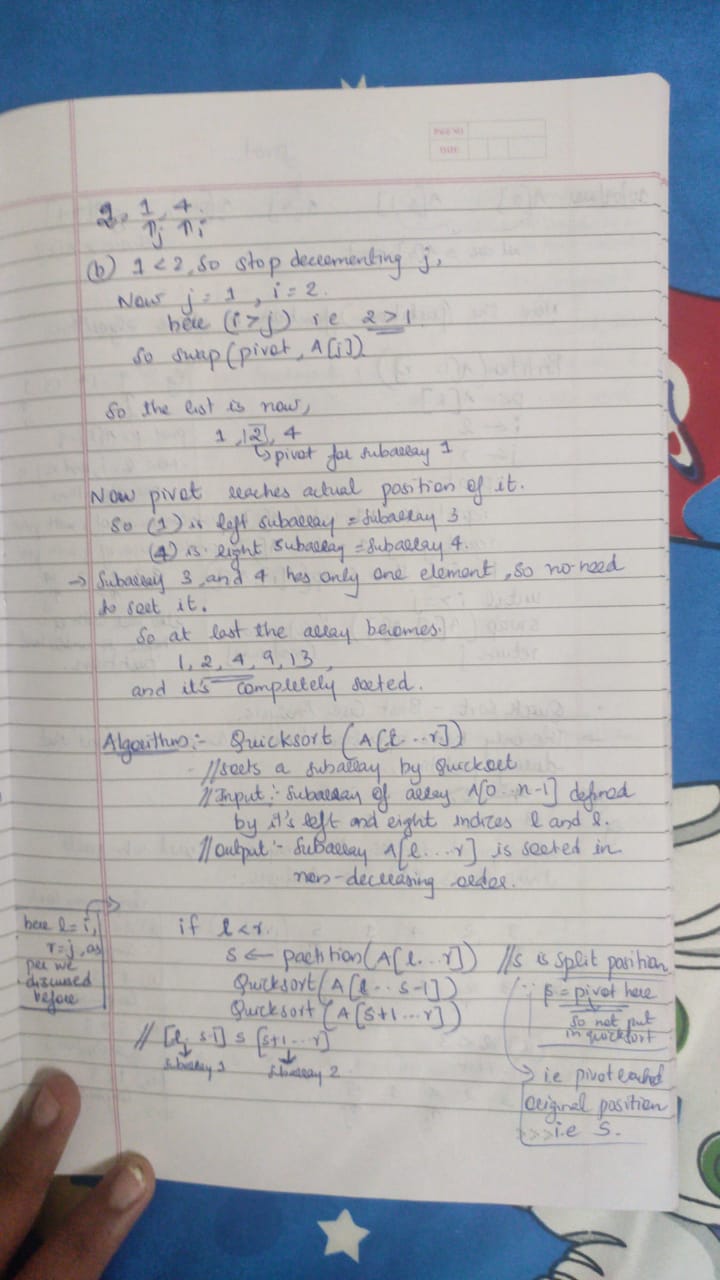 PAGE NO
DATE
2, 1, 4.
↑j ↑i
(b) 1 < 2, so stop decrementing j,
Now j = 1, i = 2.
here (i > j) ie 2 > 1
so swap (pivot, A[j])
So the list is now,
1, |2|, 4
↳ pivot for subarray 1
Now pivot reaches actual position of it.
So (1) is left subarray = subarray 3
(4) is right subarray = subarray 4.
→ Subarray 3 and 4 has only one element, so no need
to sort it.
So at last the array becomes.
1, 2, 4, 9, 13,
and it's completely sorted.
Algorithm:- Quicksort (A[l...r])
//sorts a subarray by quicksort
//Input:- Subarray of array A[0...n-1] defined
by it's left and right indices l and r.
//output:- Subarray A[l...r] is sorted in
non-decreasing order.
here l = i,
r = j, as
per we
discussed
before
if l < r.
S ← partition (A[l...r]) //s is split position
Quicksort (A[l...s-1])
Quicksort (A[s+1...r])
// [l, s-1] s [s+1...r]
subarray 1 subarray 2
∵ s = pivot here
so not put
in quicksort
→ ie pivot reached
original position
i.e S.